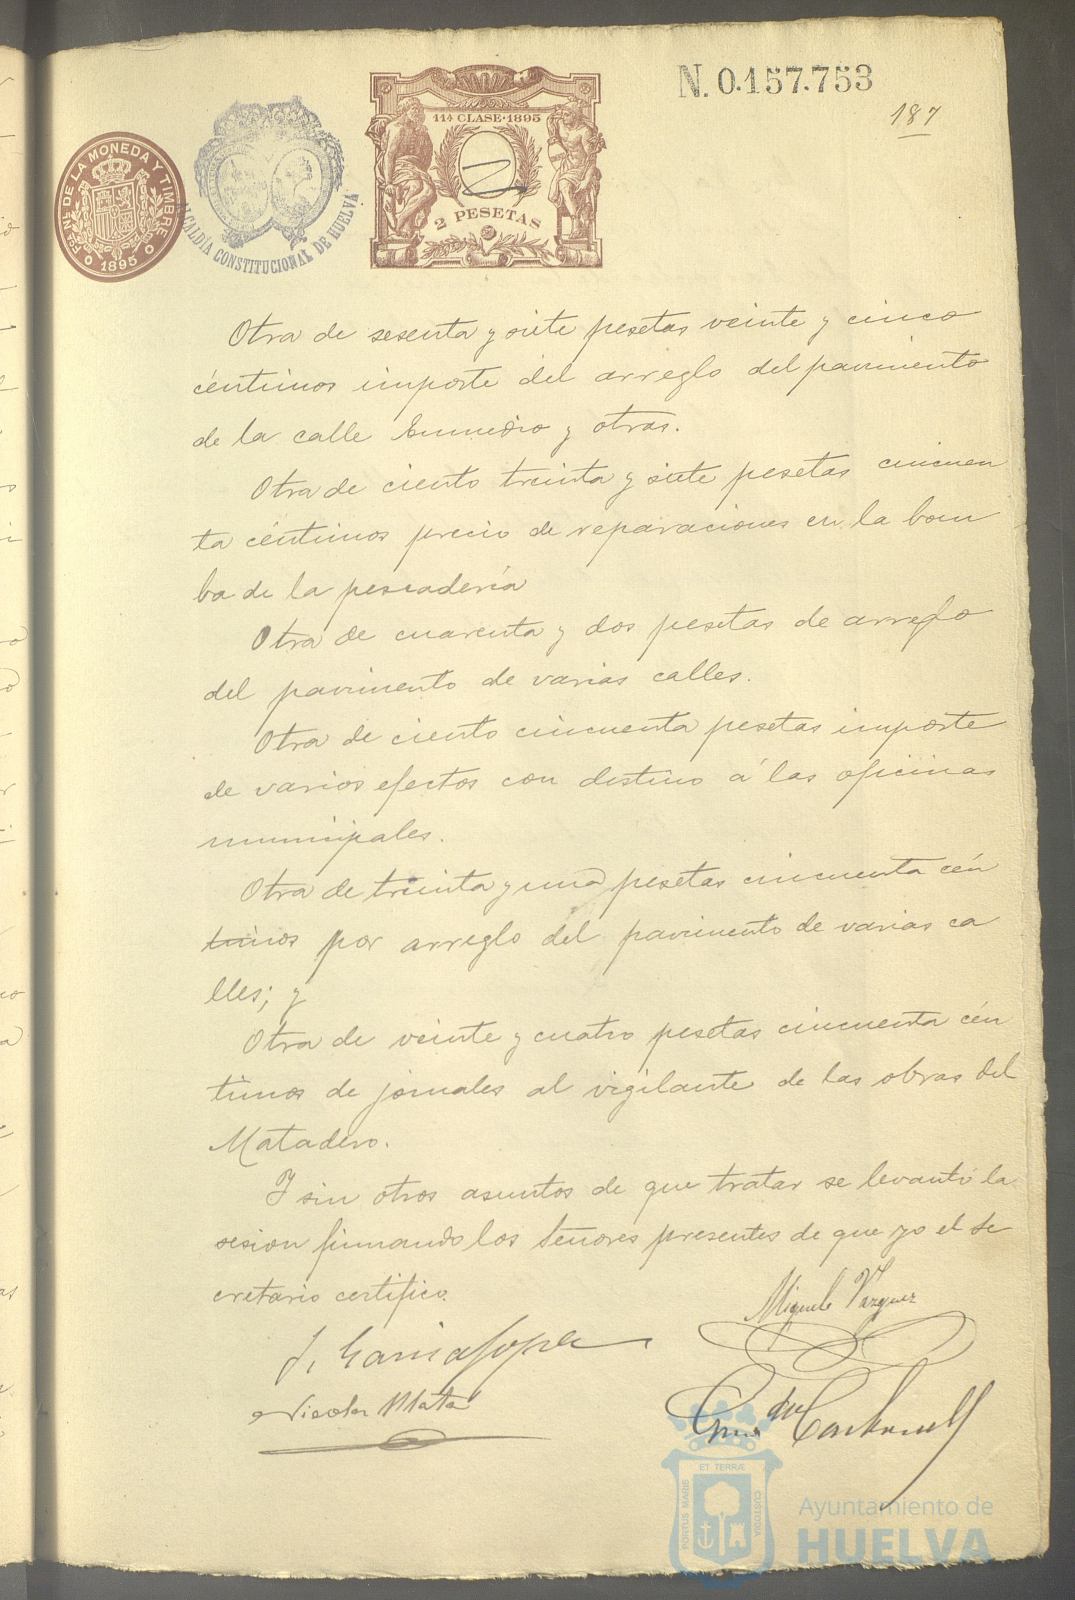 N. 0.157.753
187
FCA. NAL. DE LA MONEDA Y TIMBRE
1895
ALCALDÍA CONSTITUCIONAL DE HUELVA
11ª CLASE·1895
2 PESETAS
Otra de sesenta y siete pesetas veinte y cinco
céntimos importe del arreglo del pavimento
de la calle Enmedio y otras.
Otra de ciento treinta y siete pesetas cincuen
ta céntimos precio de reparaciones en la bom
ba de la pescadería
Otra de cuarenta y dos pesetas de arreglo
del pavimento de varias calles.
Otra de ciento cincuenta pesetas importe
de varios efectos con destino á las oficinas
municipales.
Otra de treinta y una pesetas cincuenta cén
timos por arreglo del pavimento de varias ca
lles; y
Otra de veinte y cuatro pesetas cincuenta cén
timos de jornales al vigilante de las obras del
Matadero.
Y sin otros asuntos de que tratar se levantó la
sesion firmando los Señores presentes de que yo el Se
cretario certifico.
Miguel Vazquez
J. Garcia Lopez
Nicolas Mata
Carbonell
PORTUS MARIS
ET TERRÆ
CUSTODIA
Ayuntamiento de
HUELVA